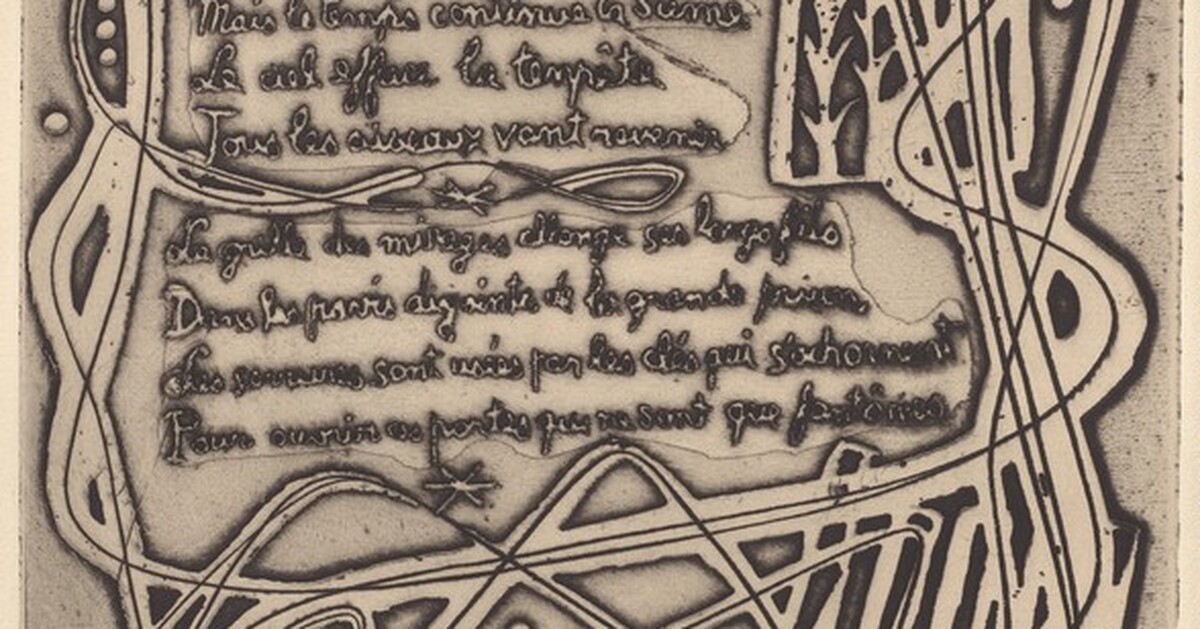 Mais le temps continue la Sienne.
Le ciel efface la tempête
Tous les oiseaux vont revenir
La grille des mirages allonge ses longs fils
Dans les parvis de la grande prison
Les serrures sont usées par les clés qui s'acharnent
Pour ouvrir ces portes qui ne sont que fantômes